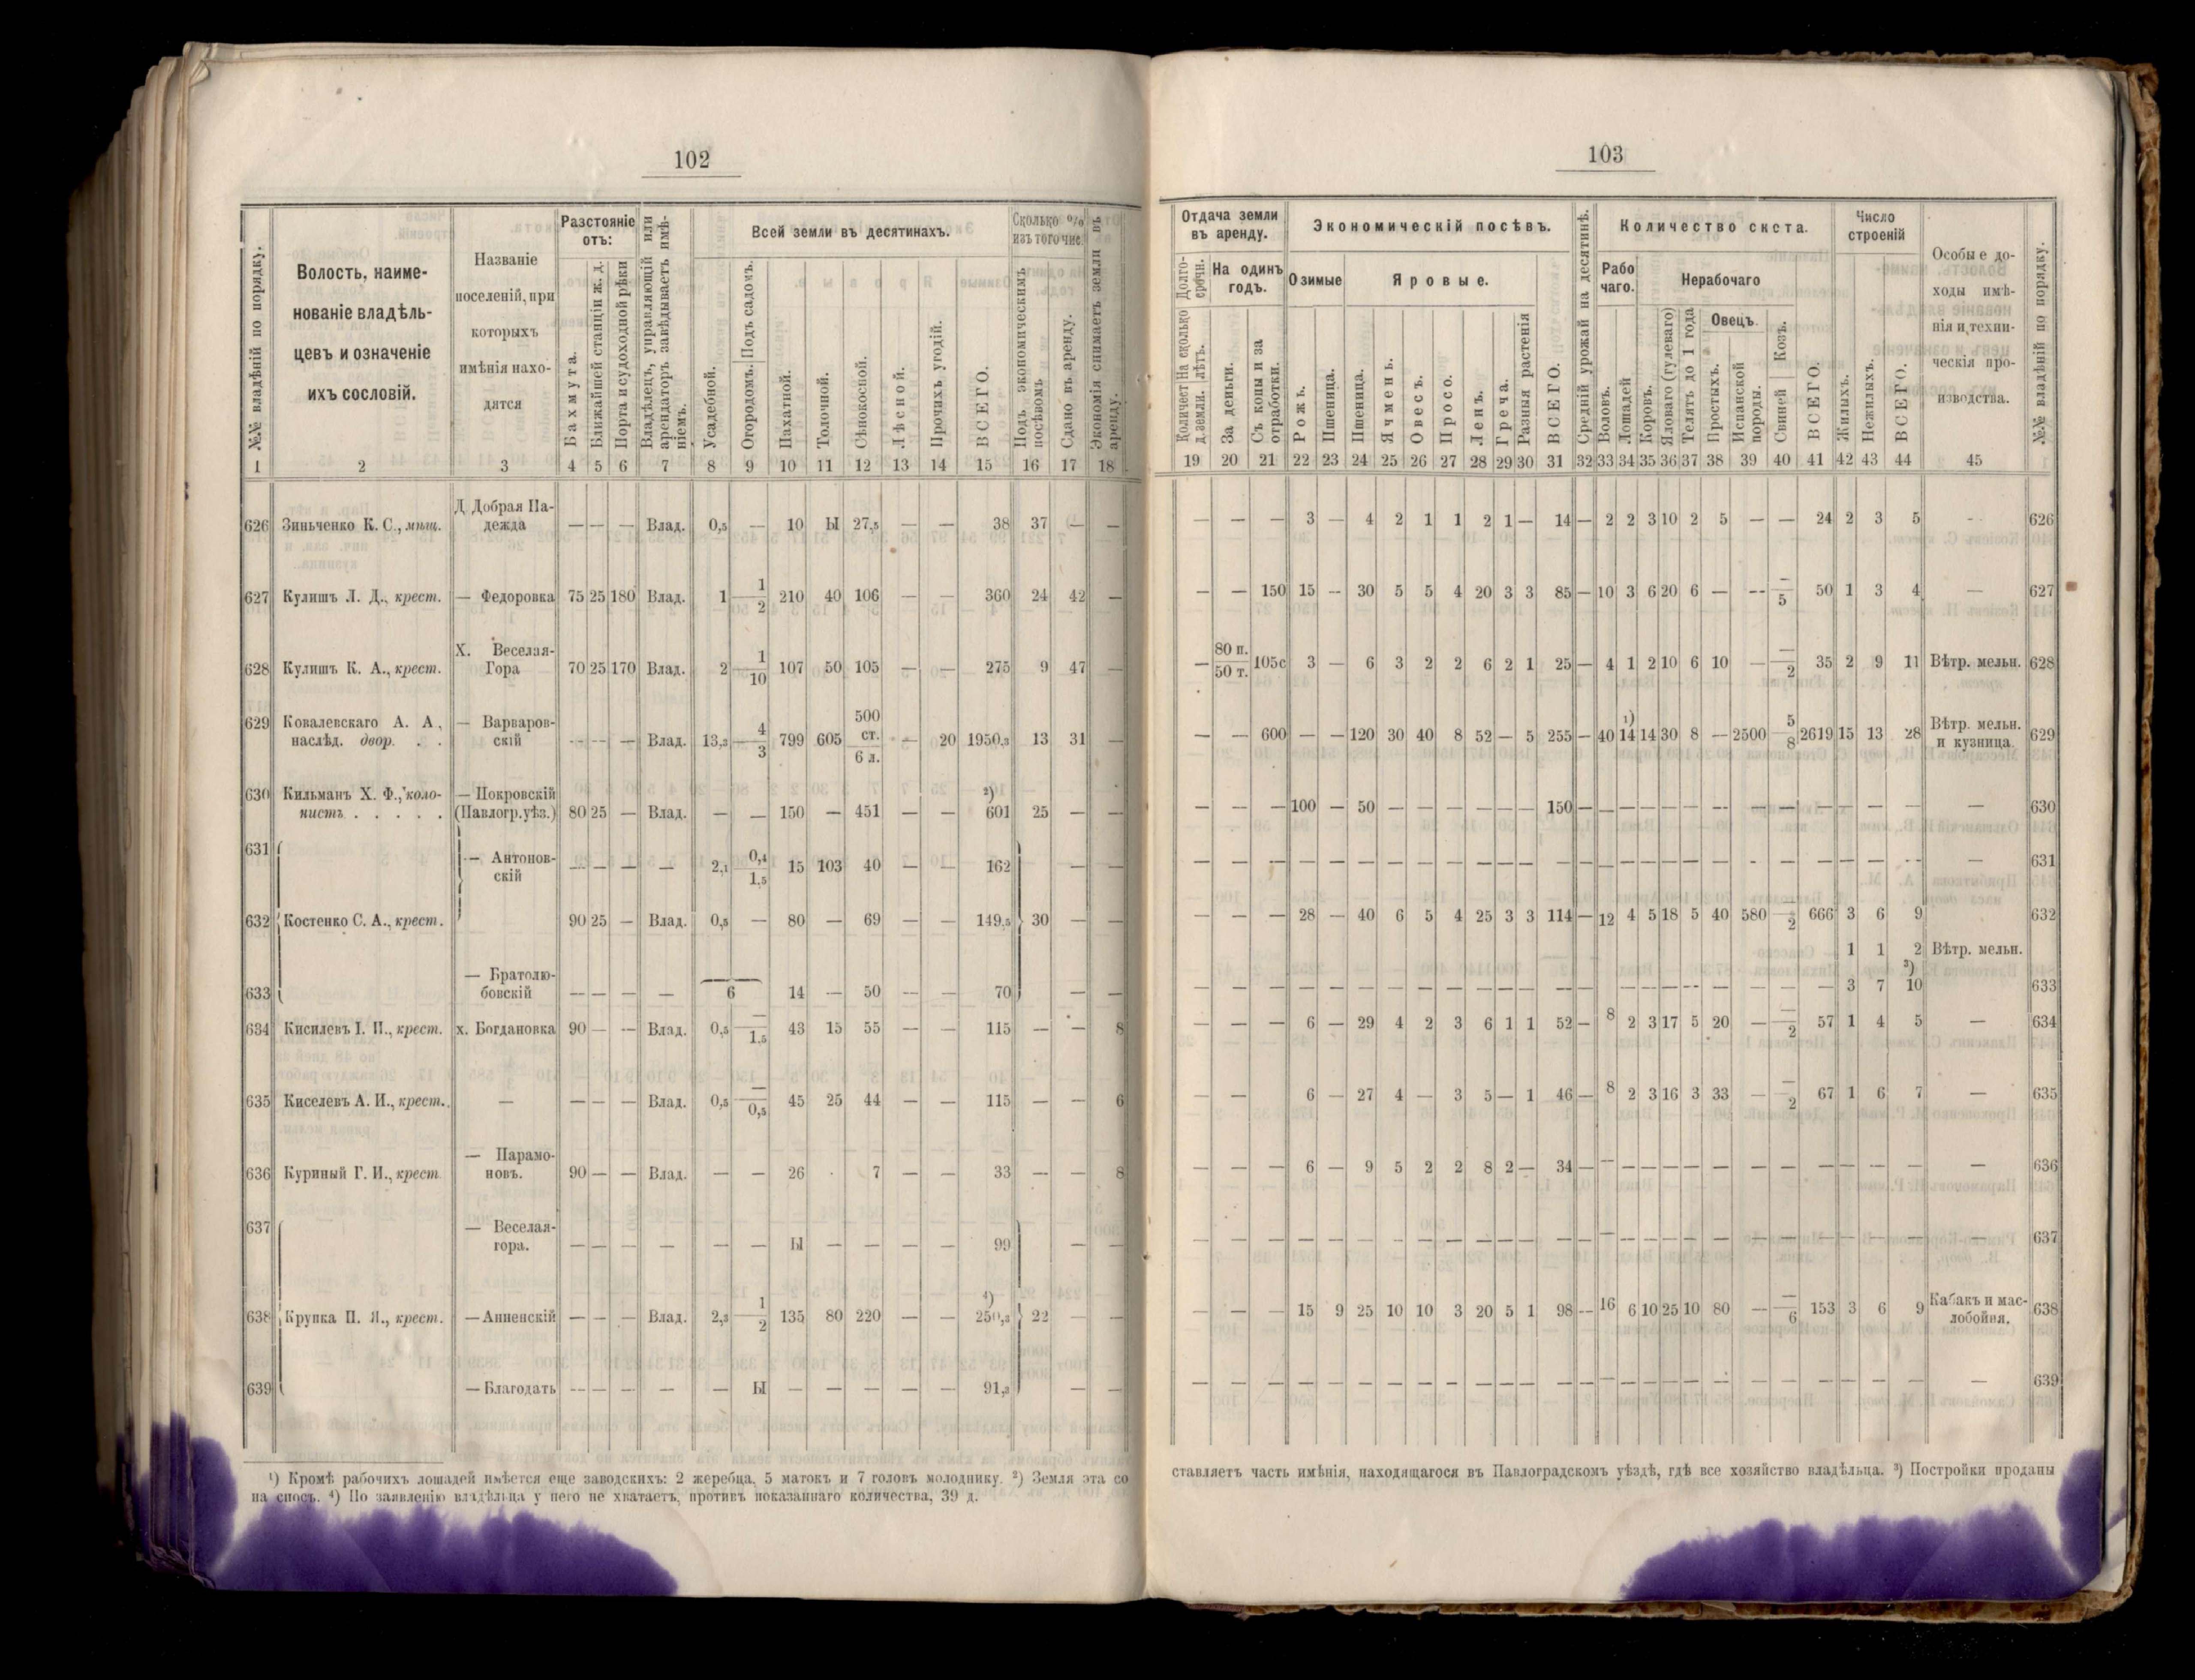 102
№№ владѣній по порядку.
Волость, наиме-
нованіе владѣль-
цевъ и означеніе
ихъ сословій.
Названіе
поселеній, при
которыхъ
имѣнія нахо-
дятся
Разстояніе
отъ:
Бахмута.
Ближайшей станціи ж. д.
Порта и судоходной рѣки
Владѣлецъ, управляющій или
арендаторъ завѣдываетъ имѣ-
ніемъ.
Всей земли въ десятинахъ.
Усадебной.
Огородомъ. Подъ садомъ.
Пахатной.
Толочной.
Сѣнокосной.
Лѣсной.
Прочихъ угодій.
ВСЕГО.
Сколько %
изъ того чис.
Подъ экономическимъ
посѣвомъ
Сдано въ аренду.
Экономія снимаетъ земли въ
аренду.
1 2 3 4 5 6 7 8 9 10 11 12 13 14 15 16 17 18
626 Зинченко К. С., мѣщ. Д. Добрая На-
дежда — — — Влад. 0,5 — 10 Ы 27,5 — — 38 37 — —
627 Кулишъ Л. Д., крест. — Федоровка 75 25 180 Влад. 1 1/2 210 40 106 — — 360 24 42 —
628 Кулишъ К. А., крест. Х. Веселая-
Гора 70 25 170 Влад. 2 1/10 107 50 105 — — 275 9 47 —
629 Ковалевскаго А. А, — Варваров-
наслѣд. двор. . . скій — — — Влад. 13,3 4/3 799 605 500 ст./6 л. — 20 1950,3 13 31 —
630 Кильманъ Х. Ф., коло- — Покровскій
нистъ . . . . . (Павлогр. уѣз.) 80 25 — Влад. — — 150 — 451 — — ²) 601 25 — —
631 — Антонов-
скій — — — — 2,1 0,4/1,5 15 103 40 — — 162 — —
632 Костенко С. А., крест. 90 25 — Влад. 0,5 — 80 — 69 — — 149,5 30 — —
— Братолю-
633 бовскій — — — — 6 14 — 50 — — 70 — —
634 Кисилевъ І. И., крест. х. Богдановка 90 — — Влад. 0,5 —/1,5 43 15 55 — — 115 — — 8
635 Киселевъ А. И., крест. — — — — Влад. 0,5 —/0,5 45 25 44 — — 115 — — 6
— Парамо-
636 Куриный Г. И., крест новъ. 90 — — Влад. — — 26 · 7 — — 33 — — 8
637 — Веселая-
гора. — — — — — — Ы — — — — 99 — —
638 Крупка П. Я., крест. — Анненскій — — — Влад. 2,3 1/2 135 80 220 — — ⁴) 250,3 22 — —
639 — Благодать — — — — — Ы — — — — — 91,3 — —
¹) Кромѣ рабочихъ лошадей имѣется еще заводскихъ: 2 жеребца, 5 матокъ и 7 головъ молоднику. ²) Земля эта со
на сносъ. ⁴) По заявленію владѣльца у него не хватаетъ, противъ показаннаго количества, 39 д.
103
Отдача земли
въ аренду.
Долго-
срочн.
Количест. д. земли. На сколько лѣтъ.
На одинъ
годъ.
За деньги.
Съ копы и за
отработки.
Экономическій посѣвъ.
Озимые
Рожь.
Пшеница.
Яровые.
Пшеница.
Ячмень.
Овесъ.
Просо.
Ленъ.
Греча.
Разныя растенія
ВСЕГО.
Средній урожай на десятинѣ.
Количество скста.
Рабо
чаго.
Воловъ.
Лошадей
Нерабочаго
Коровъ.
Яловаго (гулеваго)
Телятъ до 1 года
Овецъ.
Простыхъ.
Испанской
породы.
Свиней Козъ.
ВСЕГО.
Число
строеній
Жилыхъ.
Нежилыхъ.
ВСЕГО.
Особые до-
ходы имѣ-
нія и техни-
ческія про-
изводства.
№№ владѣній по порядку.
19 20 21 22 23 24 25 26 27 28 29 30 31 32 33 34 35 36 37 38 39 40 41 42 43 44 45
— — — 3 — 4 2 1 1 2 1 — 14 — 2 2 3 10 2 5 — — 24 2 3 5 - 626
— — 150 15 — 30 5 5 4 20 3 3 85 — 10 3 6 20 6 — — —/5 50 1 3 4 — 627
— 80 п./50 т. 105с 3 — 6 3 2 2 6 2 1 25 — 4 1 2 10 6 10 — —/2 35 2 9 11 Вѣтр. мельн. 628
— — 600 — — 120 30 40 8 52 — 5 255 — 40 ¹) 14 14 30 8 — 2500 5/8 2619 15 13 28 Вѣтр. мельн.
и кузница. 629
— — — 100 — 50 — — — — — — 150 — — — — — — — — — — — — — — 630
— — — — — — — — — — — — — — — — — — — — — — — — — — — 631
— — — 28 — 40 6 5 4 25 3 3 114 — 12 4 5 18 5 40 580 —/2 666 3 6 9 632
1 1 2 Вѣтр. мельн.
— — — — — — — — — — — — — — — — — — — — — — — 3 7 ³) 10 633
— — — 6 — 29 4 2 3 6 1 1 52 — 8 2 3 17 5 20 — —/2 57 1 4 5 — 634
— — 6 — 27 4 — 3 5 — 1 46 — 8 2 3 16 3 33 — —/2 67 1 6 7 — 635
— — — 6 — 9 5 2 2 8 2 — 34 — — — — — — — — — — — — — — 636
— — — — — — — — — — — — — — — — — — — — — — — — — — — 637
— — — 15 9 25 10 10 3 20 5 1 98 — 16 6 10 25 10 80 — —/6 153 3 6 9 Кабакъ и мас-
лобойня. 638
— — — — — — — — — — — — — — — — — — — — — — — — — — — 639
ставляетъ часть имѣнія, находящагося въ Павлоградскомъ уѣздѣ, гдѣ все хозяйство владѣльца. ³) Постройки проданы